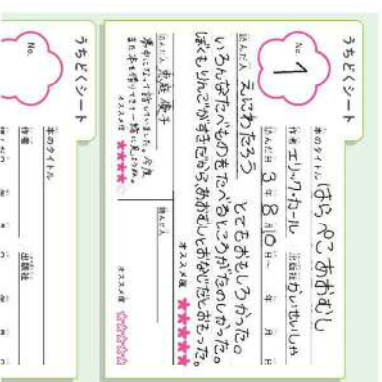 うちどくシート
No. 1
本のタイトル はらぺこあおむし
作者 エリック・カール 出版社 かいせいしゃ
読んだ日 3年 8月 10日〜 年 月 日
読んだ人 えにわたろう とてもおもしろかった。
いろんなたべものをたべるところがたのしかった。
ぼくもりんごがすきだから、あおむしとおなじだとおもった。
オススメ度 ★★★★★
読んだ人 恵庭 優子
夢中になって話していました。今度
また本を借りてきて一緒に見ようね。
オススメ度 ★★★★☆
読んだ人
オススメ度 ☆☆☆☆☆
うちどくシート
No.
本のタイトル
作者 出版社